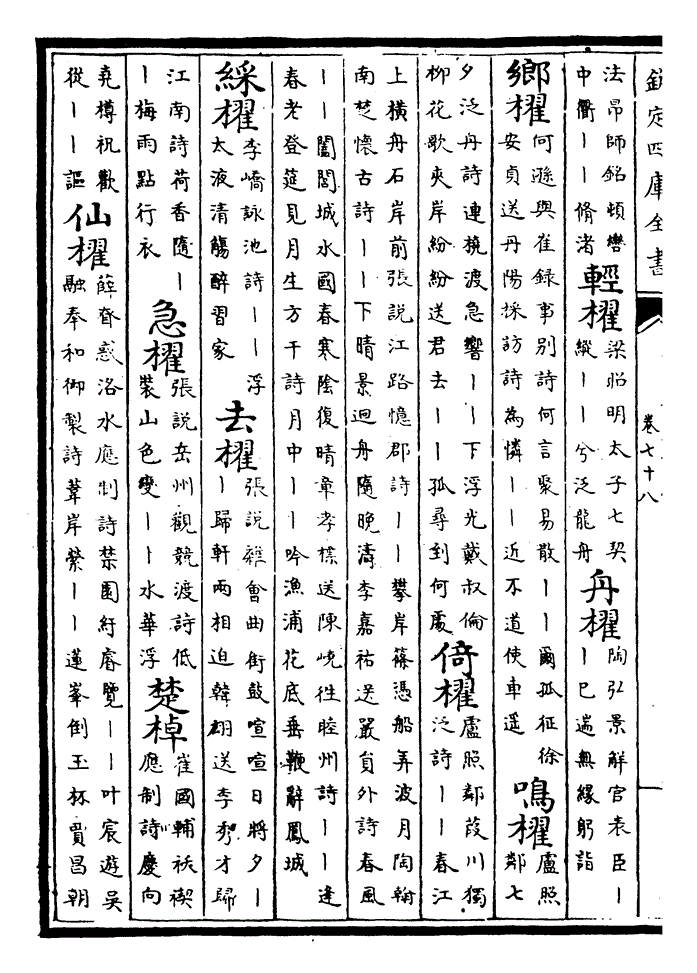 欽定四庫全書
卷七十八
法昂師銘頓轡
中衢丨丨脩渚
輕櫂
梁昭明太子七契
縱丨丨兮泛龍舟
舟櫂
陶弘景解官表臣丨
丨已遄無緣躬詣
鄉櫂
何遜與崔録事别詩何言聚易散丨丨爾孤征徐
安貞送丹陽採訪詩為憐丨丨近不道使車遥
鳴櫂
盧照
鄰七
夕泛舟詩連橈渡急響丨丨下浮光戴叔倫
柳花歌夾岸紛紛送君去丨丨孤尋到何處
倚櫂
盧照鄰葭川獨
泛詩丨丨春江
上橫舟石岸前張説江路憶郡詩丨丨攀岸篠憑船弄波月陶翰
南楚懷古詩丨丨下晴景迴舟隨晚濤李嘉祐送嚴員外詩春風
丨丨闔閭城水國春寒陰復晴章孝標送陳嶢徃睦州詩丨丨逢
春老登筵見月生方干詩月中丨丨吟漁浦花底垂鞭辭鳳城
綵櫂
李嶠詠池詩丨丨浮
太液清觴醉習家
去櫂
張説離會曲街鼓喧喧日將夕丨
丨歸軒兩相迫韓翃送李秀才歸
江南詩荷香隨丨
丨梅雨點行衣
急櫂
張説岳州觀競渡詩低
裝山色變丨丨水華浮
楚棹
崔國輔祓禊
應制詩慶向
堯樽祝歡
從丨丨謳
仙櫂
薛眘惑洛水應制詩禁園紆睿覽丨丨叶宸遊吳
融奉和御製詩葦岸縈丨丨蓮峯倒玉杯賈昌朝